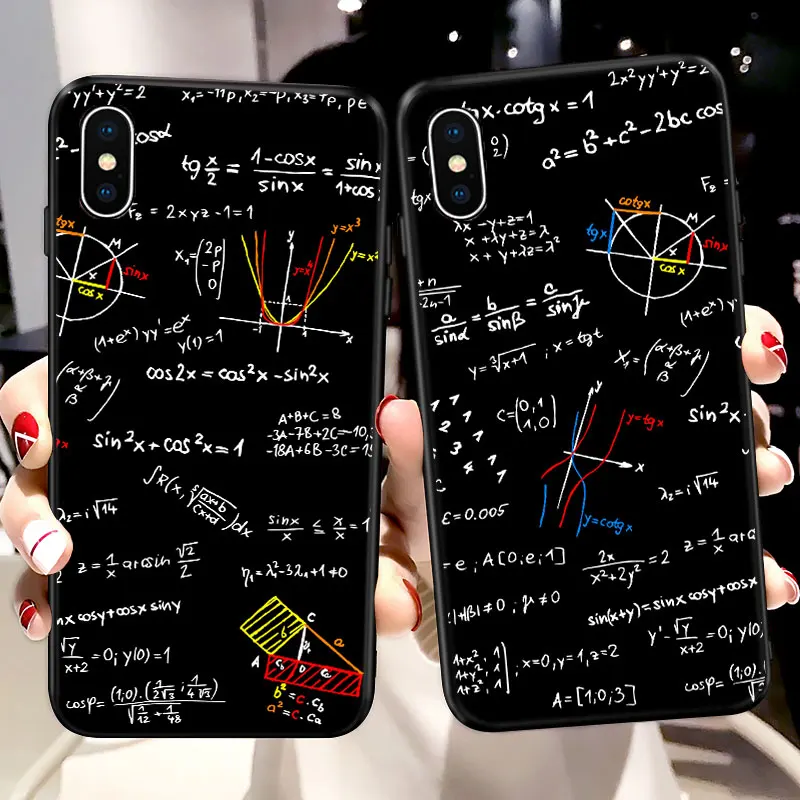 yy'+y²=2
x₁=-11p, x₂=-p, x₃=7p, pE
cosα
tg x/2 = (1-cosx)/sinx = sinx/(1+cosx)
F₂ = 2xyz-1=1
tgx
M
x
sinx
cosx
x₁=(2p -p 0)
y
y=x³
y=x⁴
y=x²
1
x
(1+eˣ)yy'=eˣ
y(1)=1
(α+β+γ α β)
cos2x = cos²x-sin²x
A+B+C=8
-3A-7B+2C=-10,3
-18A+6B-3C=15
sin²x+cos²x=1
∫R(x, ⁵√((ax+b)/(cx+d)))dx
sinx/x ≤ x/x = 1
λ₂=i√14
z=1/x arcsin √2/2
η₁=λ²-3λ₁+1≠0
nx cosy+cosx siny
√y/(x+2)=0; y(0)=1
C
b
a
A
D
c_b
c_a
b²=c.c_b
a²=c.c_a
cosφ= (1;0).(1/(2√3); 1/(4√3))/√(1/12+1/48)
2x²yy'+y²=2
nx.cotgx=1
a²=b²+c²-2bc cos
tgx
F₂
λx-y+z=1
x+λy+z=λ
x+y+λz=λ²
cotgx
tgx
M
x
sinx
cosx
+n/(2n-1)
a/sinα = b/sinβ = c/sinγ
(1+eˣ)y
y=³√(x+1) ; x=tgt
X₁=(α+β+γ α β)
C=(0,1 1,0)
y
y=tgx
x
y=cotgx
sin²x
λ₂=i√14
ε=0.005
z=1/x arc
=e, A[0;e;1]
2x/(x²+2y²)=2
|+|β|≠0 ; γ≠0
sin(x+y)=sinx cosy
1+x², 1
1+y², 1
1+z², 1
, x=0,y=1,z=2
y'-√y/(x+2)=0; y(0)
A=[1;0;3]
cosφ= (1;0).(1/